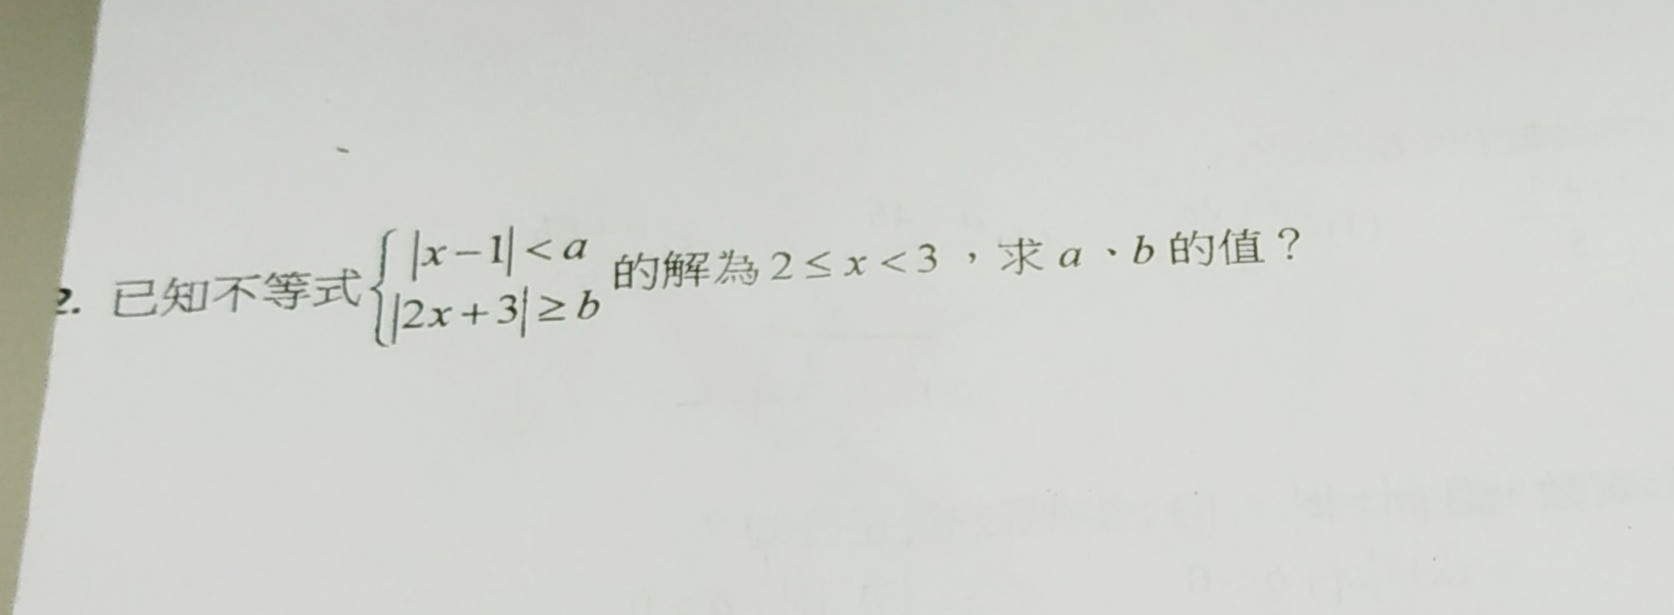 2. 已知不等式{|x−1|<a |2x+3|≥b 的解為 2≤x<3，求 a、b 的值？